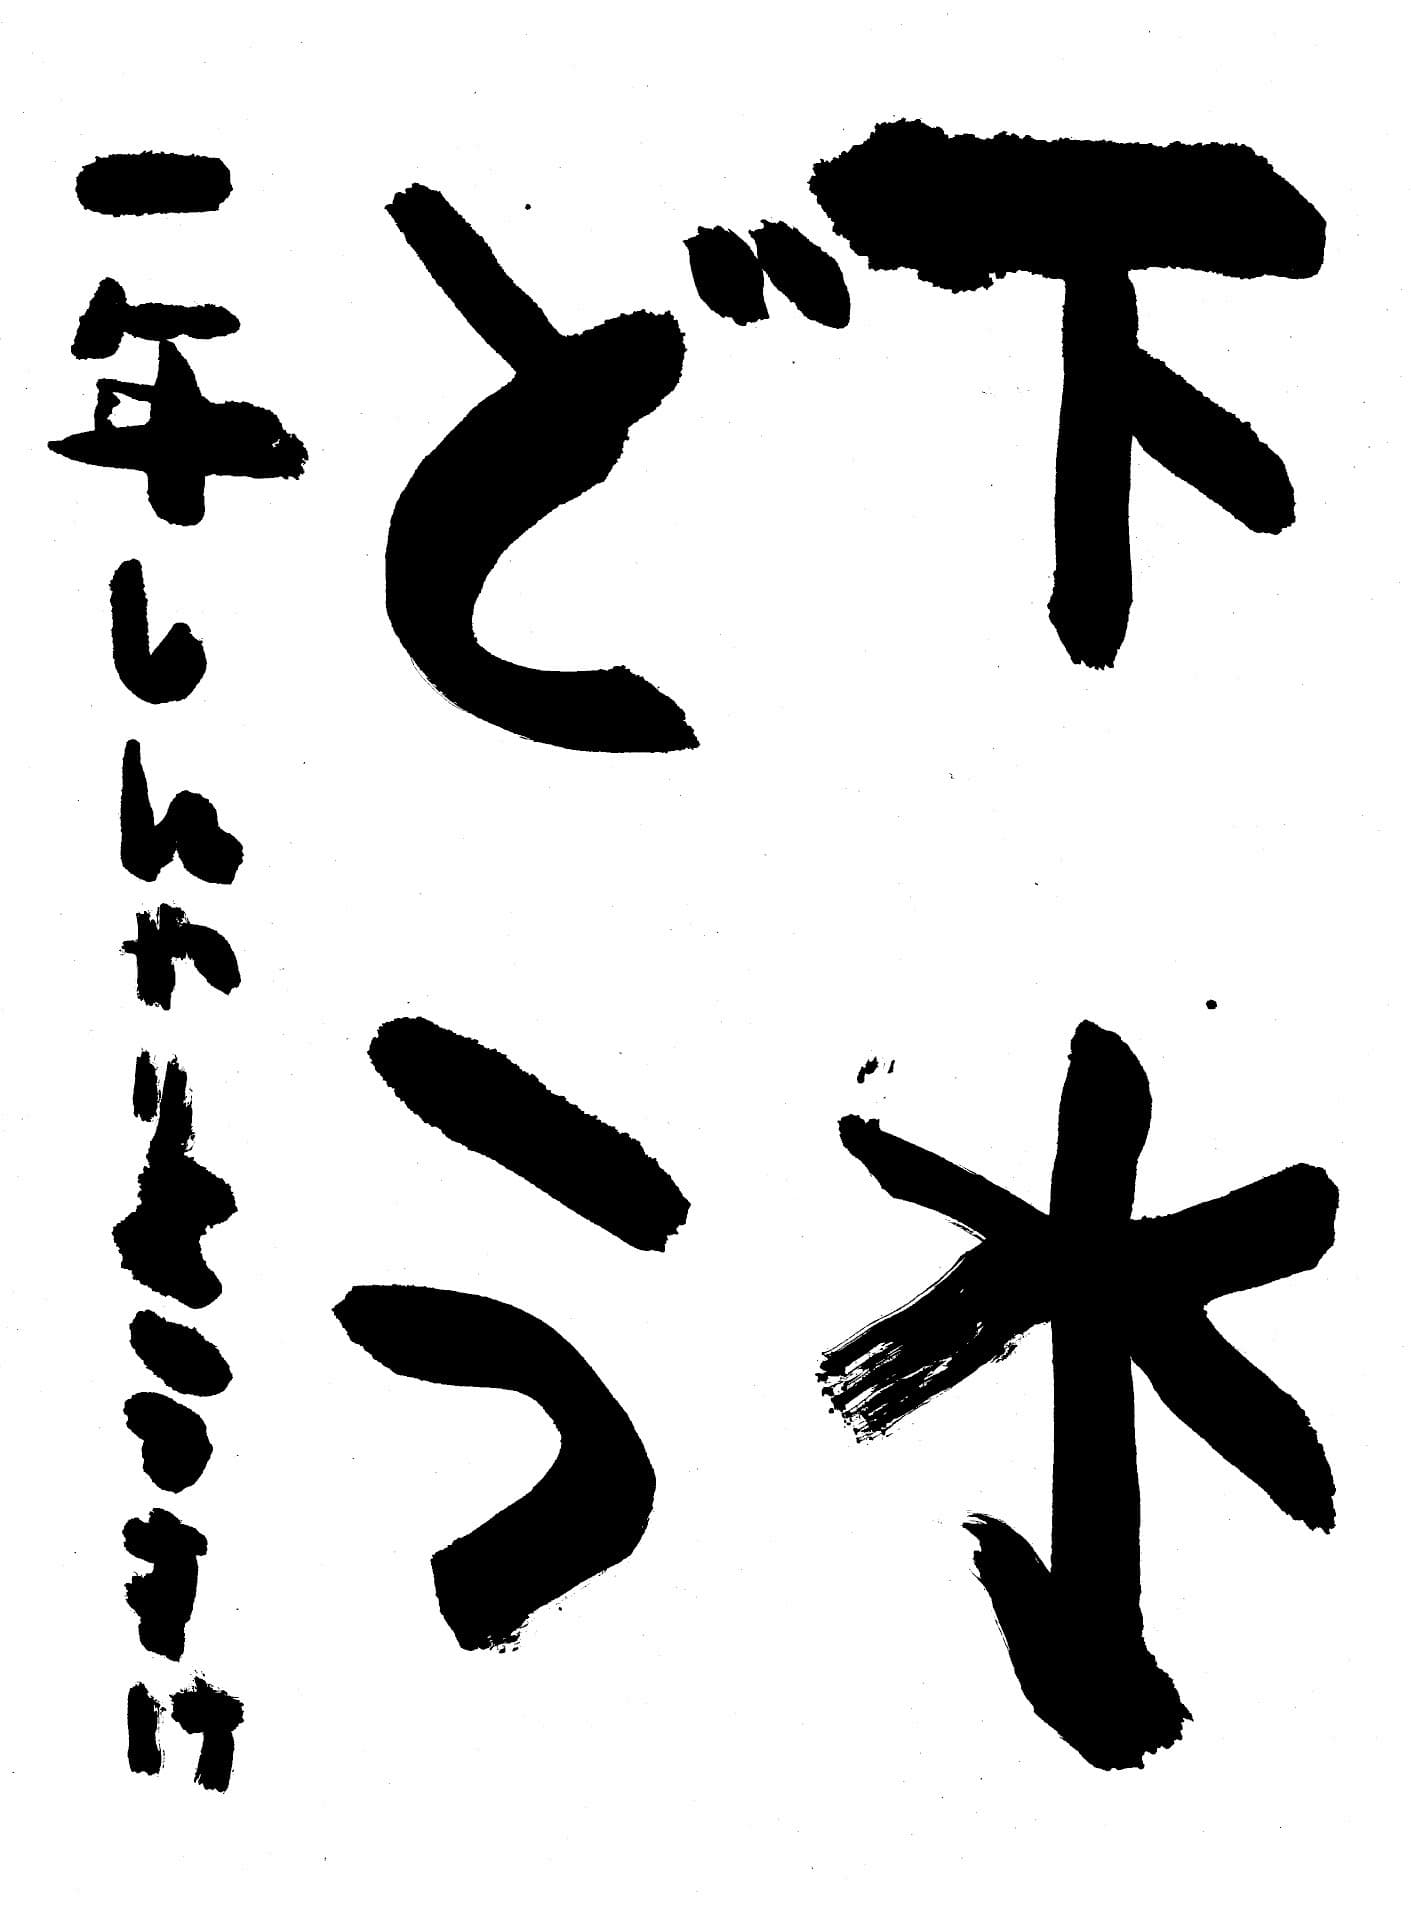 下水
どう
一年しんやりょうすけ